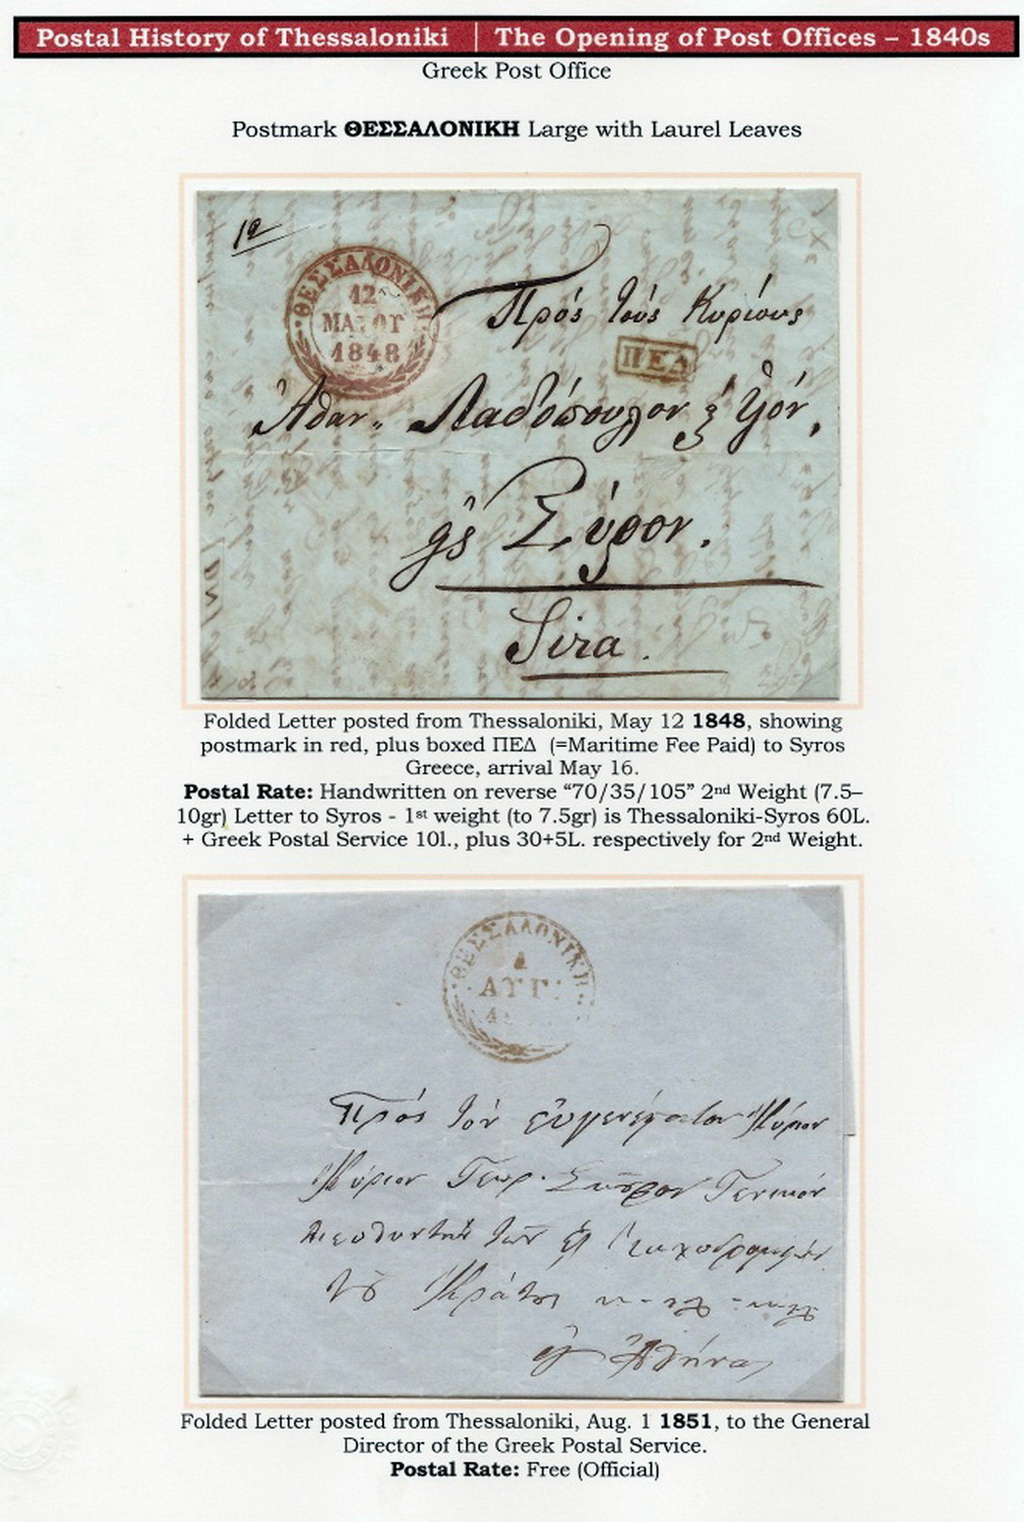 Postal History of Thessaloniki | The Opening of Post Offices – 1840s
Greek Post Office
Postmark ΘΕΣΣΑΛΟΝΙΚΗ Large with Laurel Leaves
1α
ΘΕΣΣΑΛΟΝΙΚΗ
12
ΜΑΙΟΥ
1848
Πρός τούς Κυρίους
ΠΕΔ
Ἀθαν.
Σύρον.
Sira.
Folded Letter posted from Thessaloniki, May 12 1848, showing
postmark in red, plus boxed ΠΕΔ (=Maritime Fee Paid) to Syros
Greece, arrival May 16.
Postal Rate: Handwritten on reverse “70/35/105” 2nd Weight (7.5–
10gr) Letter to Syros - 1st weight (to 7.5gr) is Thessaloniki-Syros 60L.
+ Greek Postal Service 10l., plus 30+5L. respectively for 2nd Weight.
ΘΕΣΣΑΛΟΝΙΚΗ
1
ΑΥΓ:
Πρός τόν εὐγενέστατον Κύριον
Κύριον Γεωρ. Γενικόν
Διευθυντήν τῶν Ταχυδρομείων
Κράτους
Ἀθήνας
Folded Letter posted from Thessaloniki, Aug. 1 1851, to the General
Director of the Greek Postal Service.
Postal Rate: Free (Official)